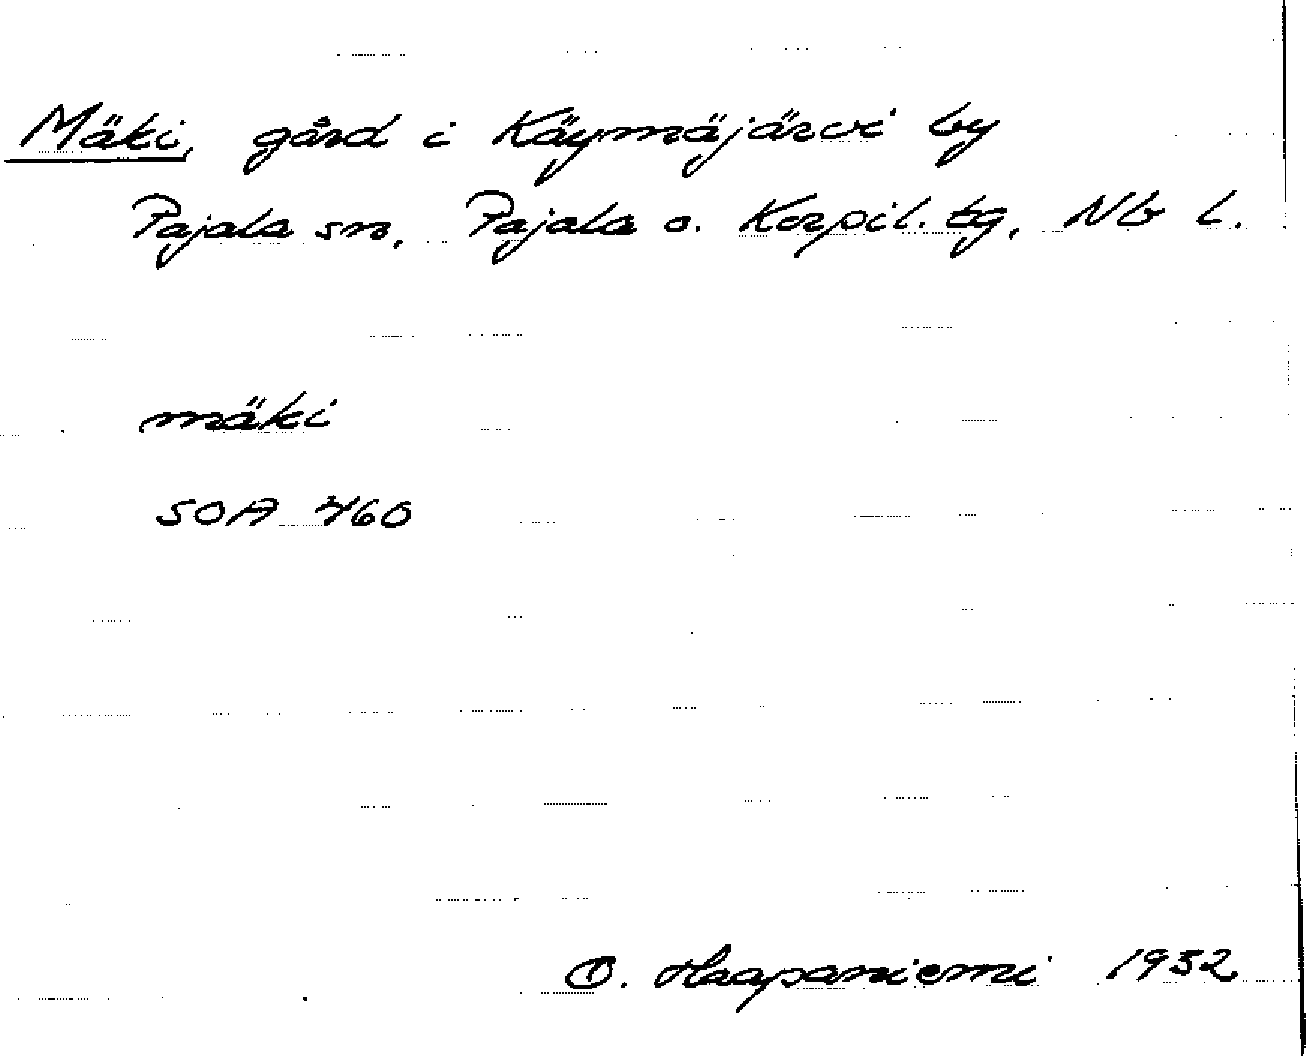 Mäki, gård i Käymäjärvi by
Pajala sn, Pajala o. Korpil. tg, Nb l.
mäki
SOA 460
O. Haapaniemi 1932